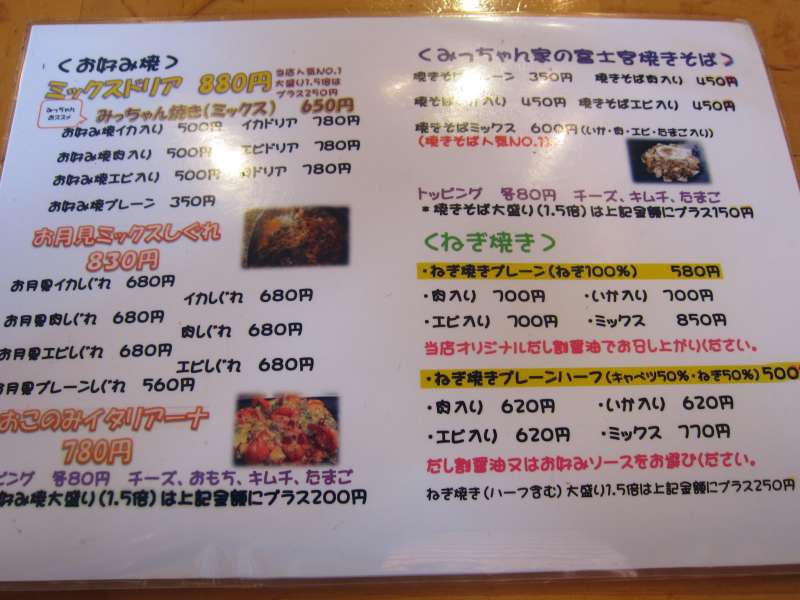 <お好み焼>
ミックスドリア 880円
当店人気NO.1
大盛り1.5倍は
プラス250円
みっちゃん
おススメ
みっちゃん焼き(ミックス) 650円
お好み焼イカ入り 500円 イカドリア 780円
お好み焼肉入り 500円 エビドリア 780円
お好み焼エビ入り 500円 肉ドリア 780円
お好み焼プレーン 350円
お月見ミックスしぐれ
830円
お月見イカしぐれ 680円
イカしぐれ 680円
お月見肉しぐれ 680円
肉しぐれ 680円
お月見エビしぐれ 680円
エビしぐれ 680円
お月見プレーンしぐれ 560円
おこのみイタリアーナ
780円
ピング 各80円 チーズ、おもち、キムチ、たまご
好み焼大盛り(1.5倍)は上記金額にプラス200円
<みっちゃん家の富士宮焼きそば>
焼きそばプレーン 350円 焼きそば肉入り 450円
焼きそばイカ入り 450円 焼きそばエビ入り 450円
焼きそばミックス 600円(いか・肉・エビ・たまご入り)
(焼きそば人気NO.1)
トッピング 各80円 チーズ、キムチ、たまご
*焼きそば大盛り(1.5倍)は上記金額にプラス150円
<ねぎ焼き>
・ねぎ焼きプレーン(ねぎ100%) 580円
・肉入り 700円 ・いか入り 700円
・エビ入り 700円 ・ミックス 850円
当店オリジナルだし割醤油でお召し上がりください。
・ねぎ焼きプレーンハーフ(キャベツ50%・ねぎ50%) 500円
・肉入り 620円 ・いか入り 620円
・エビ入り 620円 ・ミックス 770円
だし割醤油又はお好みソースをお選びください。
ねぎ焼き(ハーフ含む)大盛り1.5倍は上記金額にプラス250円